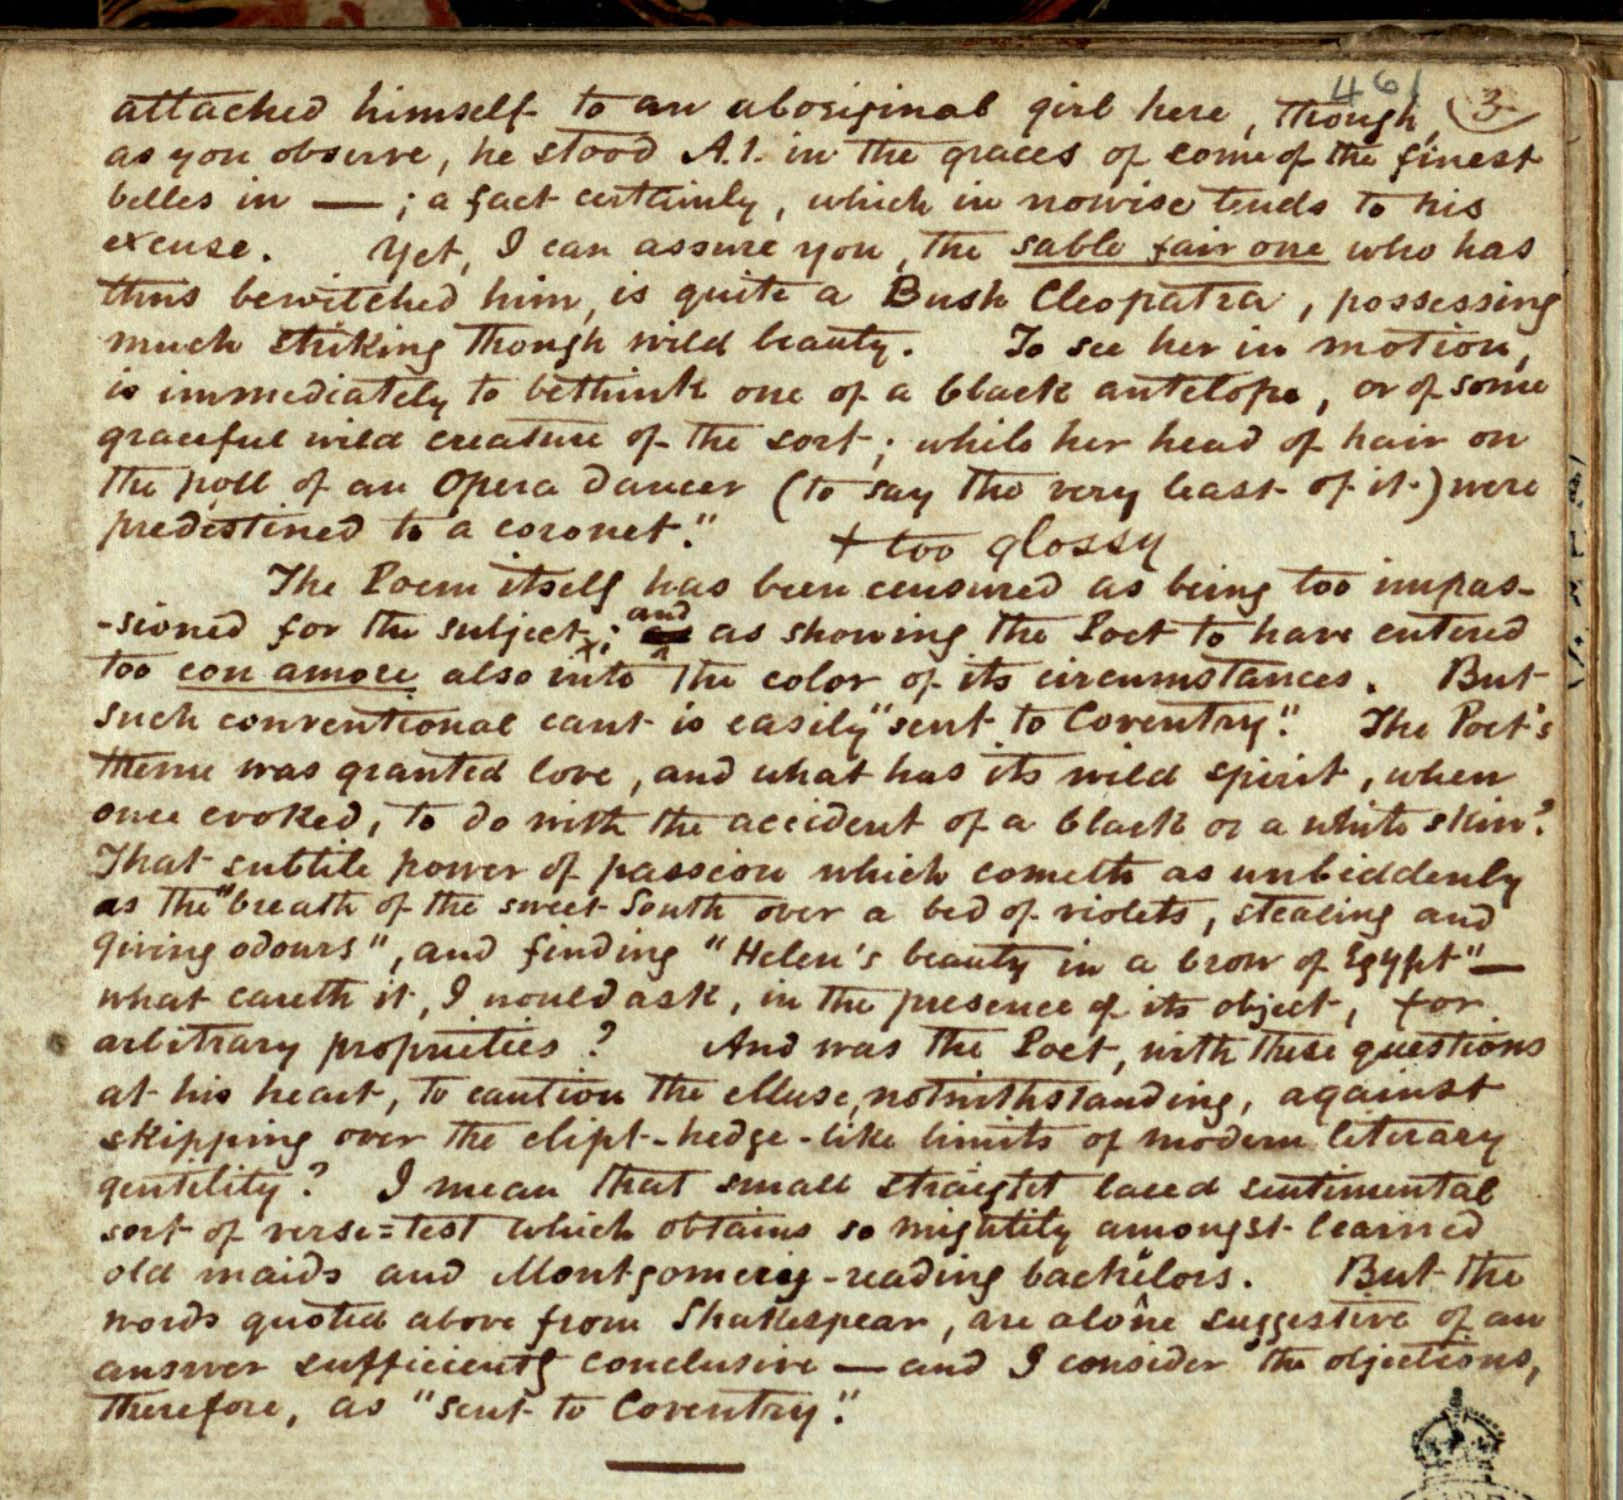 461
attached himself to an aboriginal girl here, though, (3
as you observe, he stood A.1. in the graces of some of the finest
belles in — ; a fact certainly, which in nowise tends to his
excuse. Yet, I can assure you, the sable fair one who has
thus bewitched him, is quite a Bush Cleopatra, possessing
much striking though wild beauty. To see her in motion,
is immediately to bethink one of a black antelope, or of some
graceful wild creature of the sort; while her head of hair on
the poll of an Opera dancer (to say the very least of it) were
predestined to a coronet."
+ too glossy
The Poem itself has been censured as being too impas-
-sioned for the subject x; and as showing the Poet to have entered
too con amore also into the color of its circumstances. But
such conventional cant is easily "sent to Coventry". The Poet's
theme was granted love, and what has its wild spirit, when
once evoked, to do with the accident of a black or a white skin?
That subtile power of passion which cometh as unbiddenly
as the "breath of the sweet South over a bed of violets, stealing and
giving odours", and finding "Helen's beauty in a brow of Egypt"—
what careth it, I would ask, in the presence of its object, for
arbitrary proprieties? And was the Poet, with these questions
at his heart, to caution the Muse, notwithstanding, against
skipping over the clipt-hedge-like limits of modern literary
gentility? I mean that small straight laced sentimental
sort of verse=test which obtains so mightily amongst learned
old maids and Montgomery-reading bachelors. But the
words quoted above from Shakespear, are alone suggestive of an
answer sufficiently conclusive — and I consider the objections,
therefore, as "sent to Coventry".